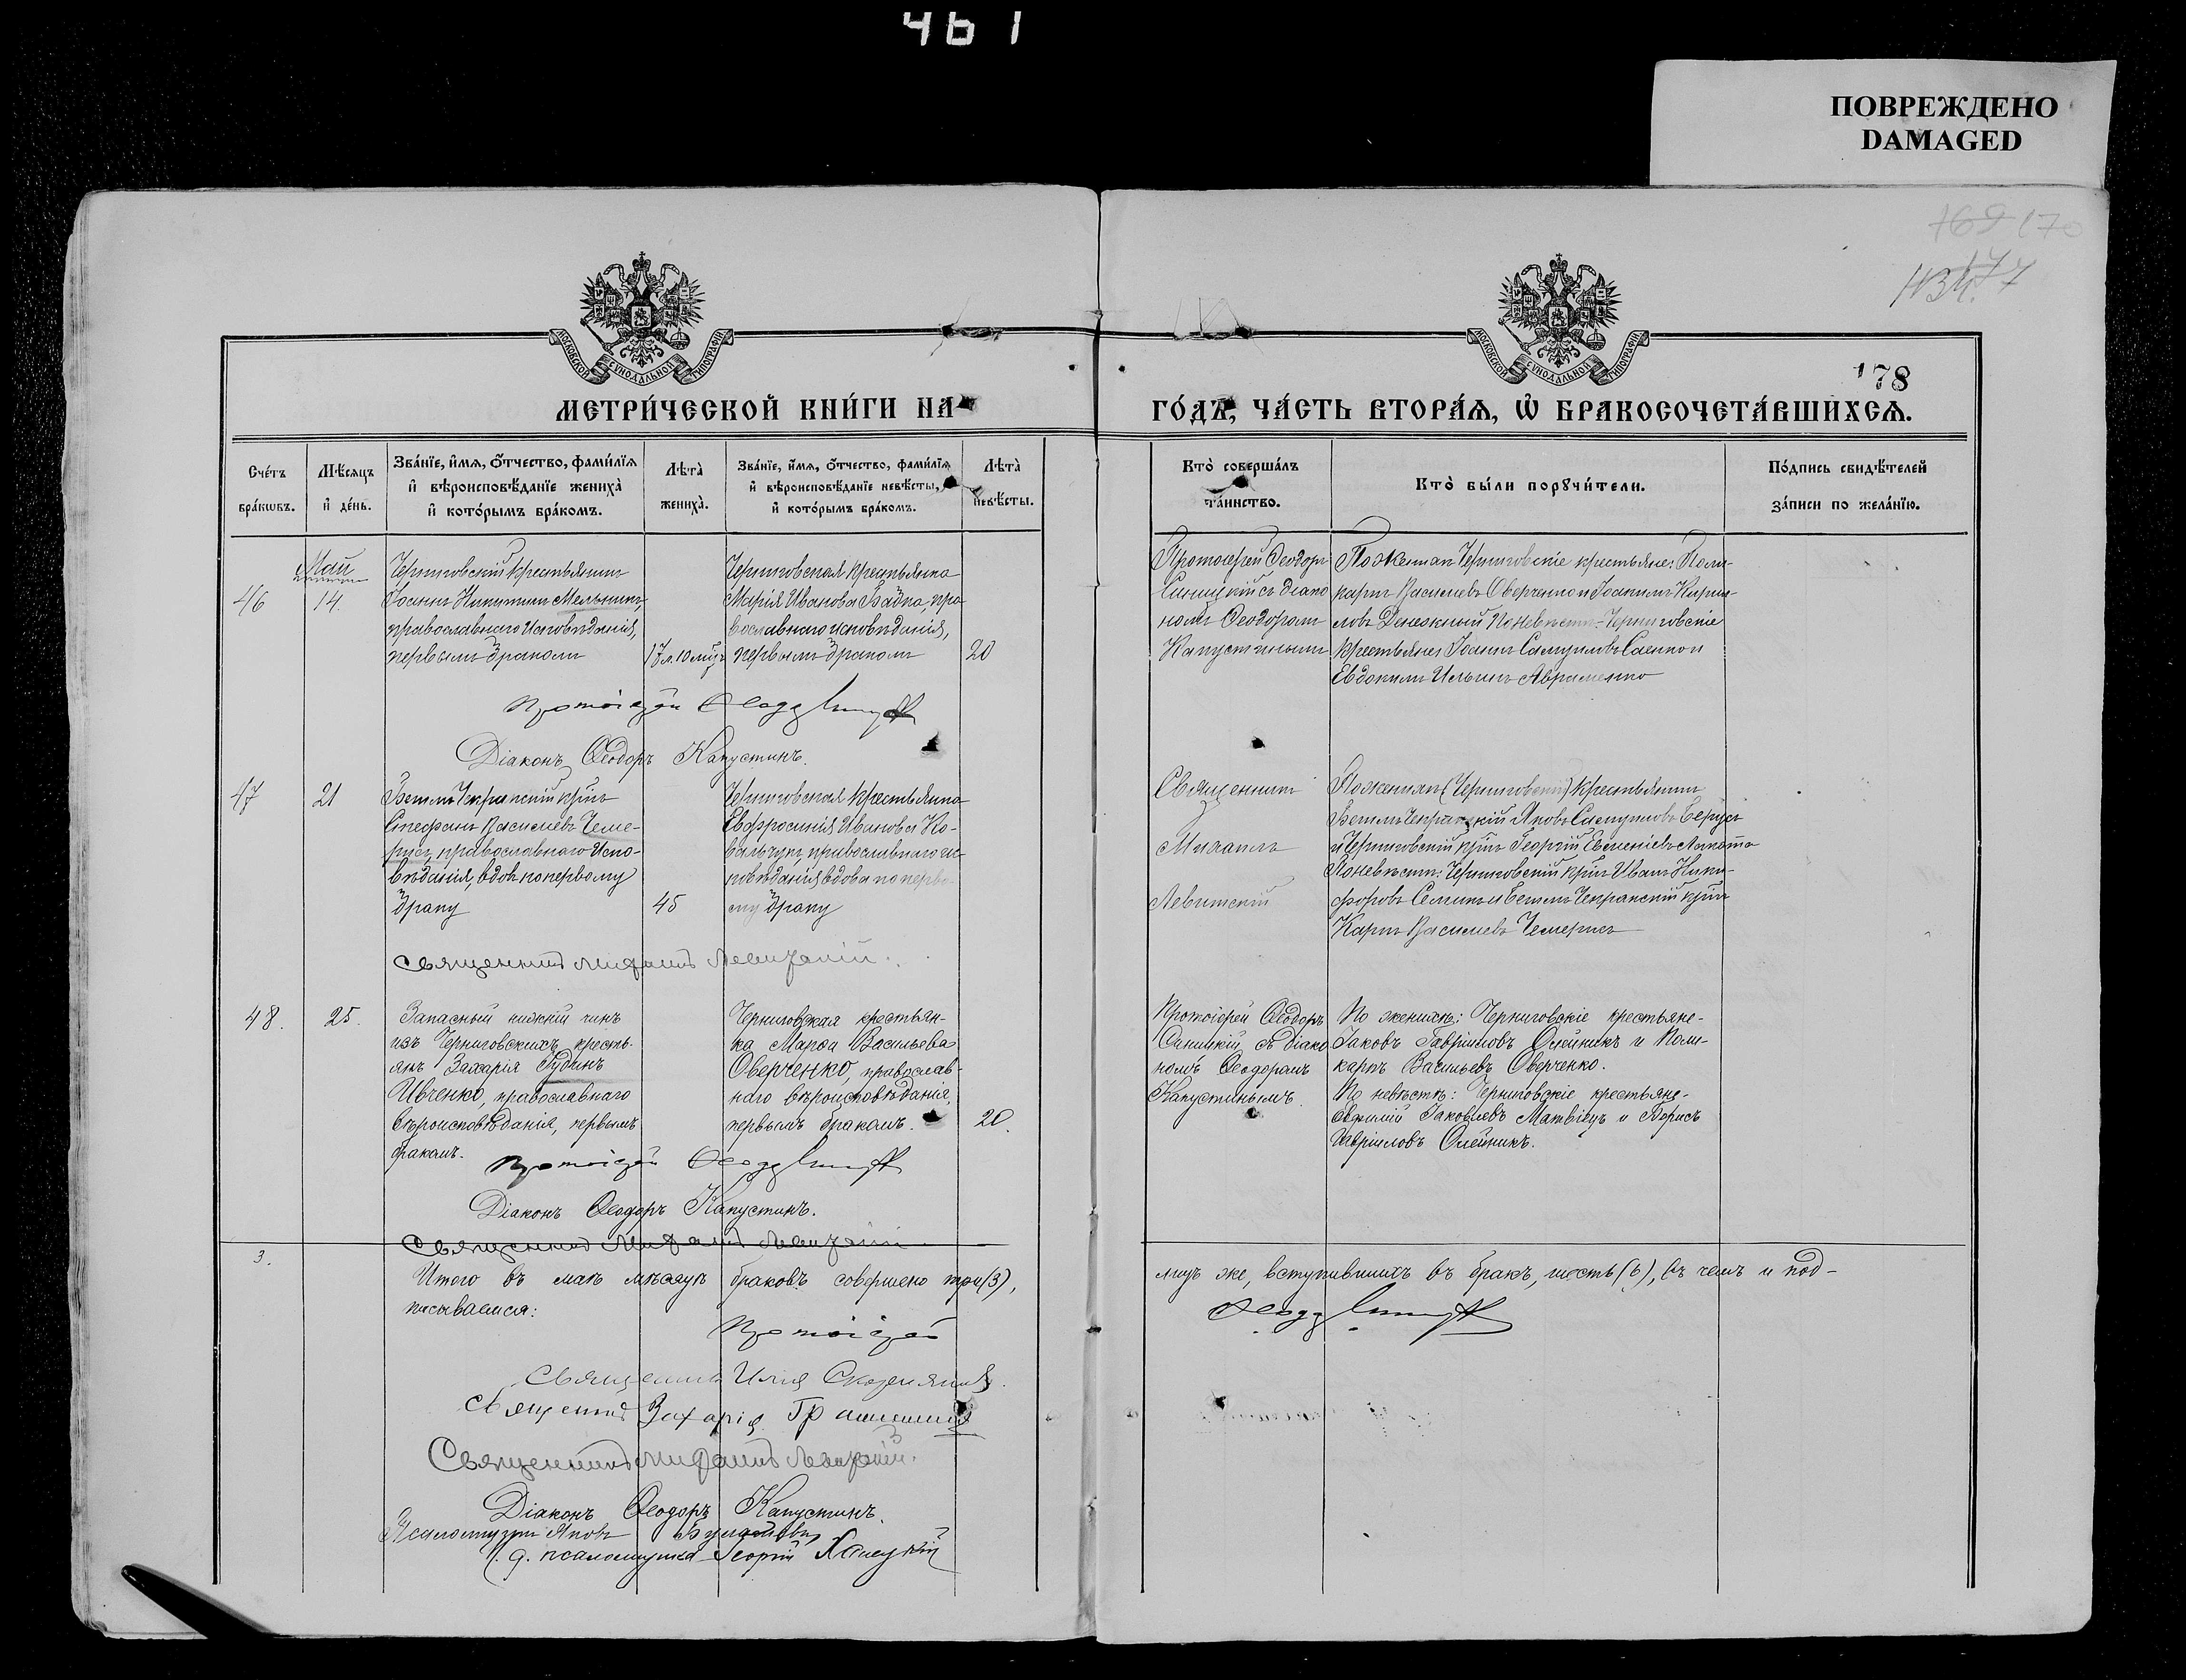 461
ПОВРЕЖДЕНО
DAMAGED
169 170
177
178
МОСКОВСКОЙ СУНОДАЛЬНОЙ ТИПОГРАФІИ
МОСКОВСКОЙ СУНОДАЛЬНОЙ ТИПОГРАФІИ
МЕТРИ́ЧЕСКОЙ КНИ́ГИ НА
ГО́ДЪ, ЧА́СТЬ ВТОРА́Ѧ, Ѡ БРАКОСОЧЕТА́ВШИХСѦ.
Сче́тъ бра́кѡвъ.
Мѣ́сяцъ и де́нь.
Зва́нїе, и́мѧ, о́тчество, фами́лїѧ
и вѣроисповѣ́данїе жениха̀
и кото́рымъ бра́комъ.
Лѣта̀ жениха̀.
Зва́нїе, и́мѧ, о́тчество, фами́лїѧ
и вѣроисповѣ́данїе невѣ́сты,
и кото́рымъ бра́комъ.
Лѣта̀ невѣ́сты.
Кто̀ соверша́лъ та́инство.
Кто̀ бы́ли порꙋчи́тели.
По́дпись свидѣ́телей
за́писи по жела́нїю.
Май
46
14.
Черниговскій Крестьянинъ
Іоаннъ Никитинъ Мельникъ,
православнаго Исповѣданія,
первымъ бракомъ
17 л. 10 мѣц.
Черниговская Крестьянка
Марія Иванова Бабка, пра
вославнаго исповѣданія,
первымъ бракомъ
20
Протоіерей Ѳеодоръ
Синицкій съ діако
номъ Ѳеодоромъ
Капустинымъ
По Женихѣ Черниговскіе крестьяне: Поли-
карпъ Васильевъ Оверченко и Іоакимъ Кирил-
ловъ Денежный По Невѣстѣ - Черниговскіе
Крестьяне Іоаннъ Самуиловъ Саенко и
Евдокимъ Ильинъ Авраменко
Протоіерей Ѳеод
Діаконъ Ѳеодоръ Капустинъ.
47
21
Крнъ
Стефанъ Васильевъ Чеме-
рисъ, православнаго Испо-
вѣданія, вдовъ по первому
браку
45
Черниговская Крестьянка
Евфросинія Иванова Ко-
вальчукъ, православнаго ис-
повѣданія, вдова по перво-
му браку
Священникъ
Михаилъ
Левитскій
По Женихѣ (Черниговскій) Крестьянинъ
Яковъ Самуиловъ
и Черниговскій крнъ Георгій Евменіевъ
По невѣстѣ: Черниговскій крнъ Иванъ Ники-
форовъ
Карпъ Васильевъ Чемерисъ
Священникъ Михаилъ Левитскій.
48.
25.
Запасный нижній чинъ
изъ Черниговскихъ кресть-
янъ Захарія Гудинъ
Ивченко, православнаго
вѣроисповѣданія, первымъ
бракомъ.
Черниговская крестьян-
ка Марѳа Васильева
Оверченко, православ-
наго вѣроисповѣданія,
первымъ бракомъ.
20.
Протоіерей Ѳеодоръ
Синицкій, съ діако
номъ Ѳеодоромъ
Капустинымъ.
По женихѣ: Черниговскіе крестьяне-
Іаковъ Гавріиловъ Олейникъ и Поли-
карпъ Васильевъ Оверченко.
По невѣстѣ: Черниговскіе крестьяне-
Евфимій Іаковлевъ Матвіецъ и Борисъ
Гавріиловъ Олейникъ.
Протоіерей Ѳеод
Діаконъ Ѳеодоръ Капустинъ.
Священникъ Михаилъ Левитскій
3.
Итого въ маѣ мѣсяцѣ браковъ совершено три (3),
лицъ же, вступившихъ въ бракъ, шесть (6), въ чемъ и под-
писываемся:
Протоіерей
Ѳеод
Священникъ Илія
Священникъ Захарія
Священникъ Михаилъ Левитскій.
Діаконъ Ѳеодоръ Капустинъ.
Псаломщикъ Яковъ
И. д. псаломщика Георгій